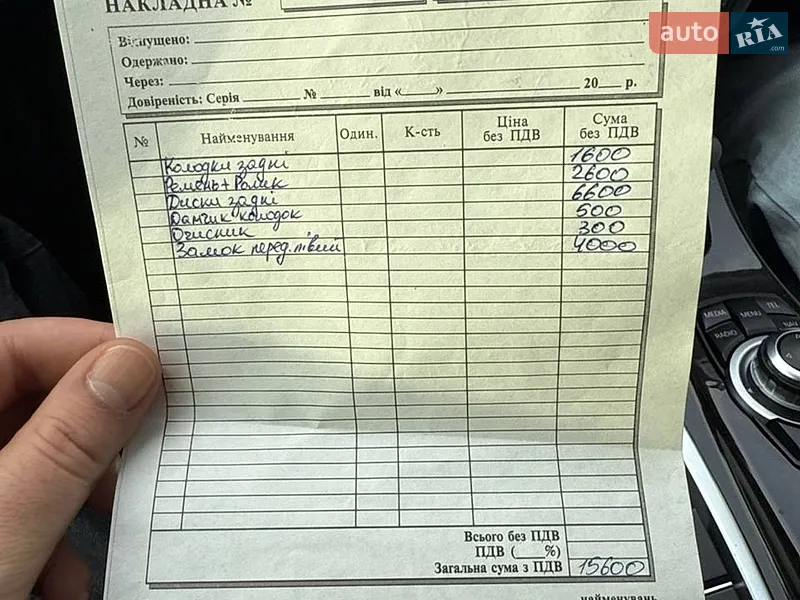 НАКЛАДНА №
auto RIA .com
Відпущено:
Одержано:
Через: 20 р.
Довіреність: Серія № від « »
№ Найменування Один. К-сть Ціна без ПДВ Сума без ПДВ
Колодки задні 1600
Ремень+Ролик 2600
Диски задні 6600
Датчик колодок 500
Очисник 300
Замок перед. лівий 4000
Всього без ПДВ
ПДВ ( %)
Загальна сума з ПДВ 15600
найменувань
MEDIA
MENU
TEL
RADIO
NAV